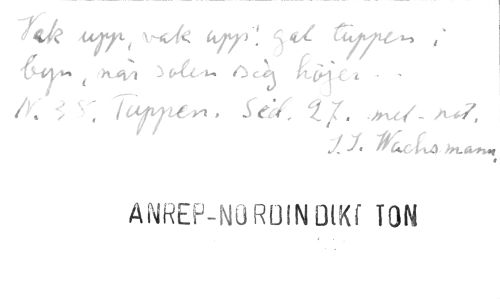 Vak upp, vak upp! gal tuppen i
byn, när solen sig höjer...
N. 38. Tuppen. Sid. 27. med not.
J. J. Wachsmann.
ANREP-NORDIN DIKT TON